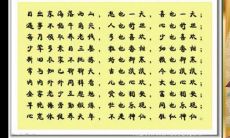 日出东海落西山，愁也一天，喜也一天；
遇事不钻牛角尖，人也舒坦，心也舒坦；
每月领取养老钱，多也喜欢，少也喜欢；
少荤多素日三餐，粗也香甜，细也香甜；
新旧衣服不挑拣，好也御寒，赖也御寒；
常与知己聊聊天，古也谈谈，今也谈谈；
内孙外孙同样看，儿也心欢，女也心欢；
全家老少互慰勉，贫也相安，富也相安；
早晚操劳勤锻炼，忙也乐观，闲也乐观；
心宽体健养天年，不是神仙，胜似神仙。